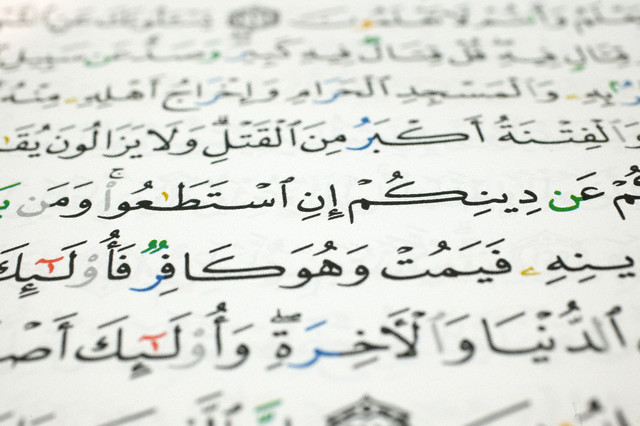 وَأَنتُمْ لَا تَعْلَمُونَ يَسْـَٔلُونَكَ عَنِ
قِتَالٍ فِيهِ قُلْ قِتَالٌ فِيهِ كَبِيرٌ وَصَدٌّ عَن سَبِيلِ
بِهِۦ وَٱلْمَسْجِدِ ٱلْحَرَامِ وَإِخْرَاجُ أَهْلِهِۦ مِنْهُ
وَٱلْفِتْنَةُ أَكْبَرُ مِنَ ٱلْقَتْلِ ۗ وَلَا يَزَالُونَ يُقَـٰ
كُمْ عَن دِينِكُمْ إِنِ ٱسْتَطَـٰعُوا۟ ۚ وَمَن يَـ
ـينِهِۦ فَيَمُتْ وَهُوَ كَافِرٌ فَأُو۟لَـٰٓئِكَ
ٱلدُّنْيَا وَٱلْـَٔاخِرَةِ ۖ وَأُو۟لَـٰٓئِكَ أَصْـ